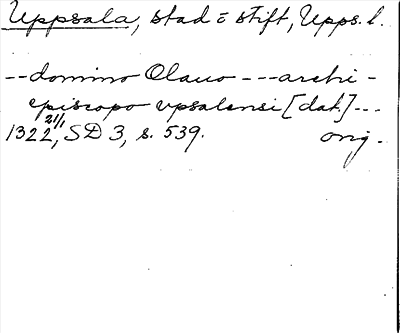 Uppsala, stad o stift, Upps. l.
-- domino Olauo --- archi-
episcopo vpsalensi [dat.] ---
1322 21/1, SD 3, s. 539. orig.